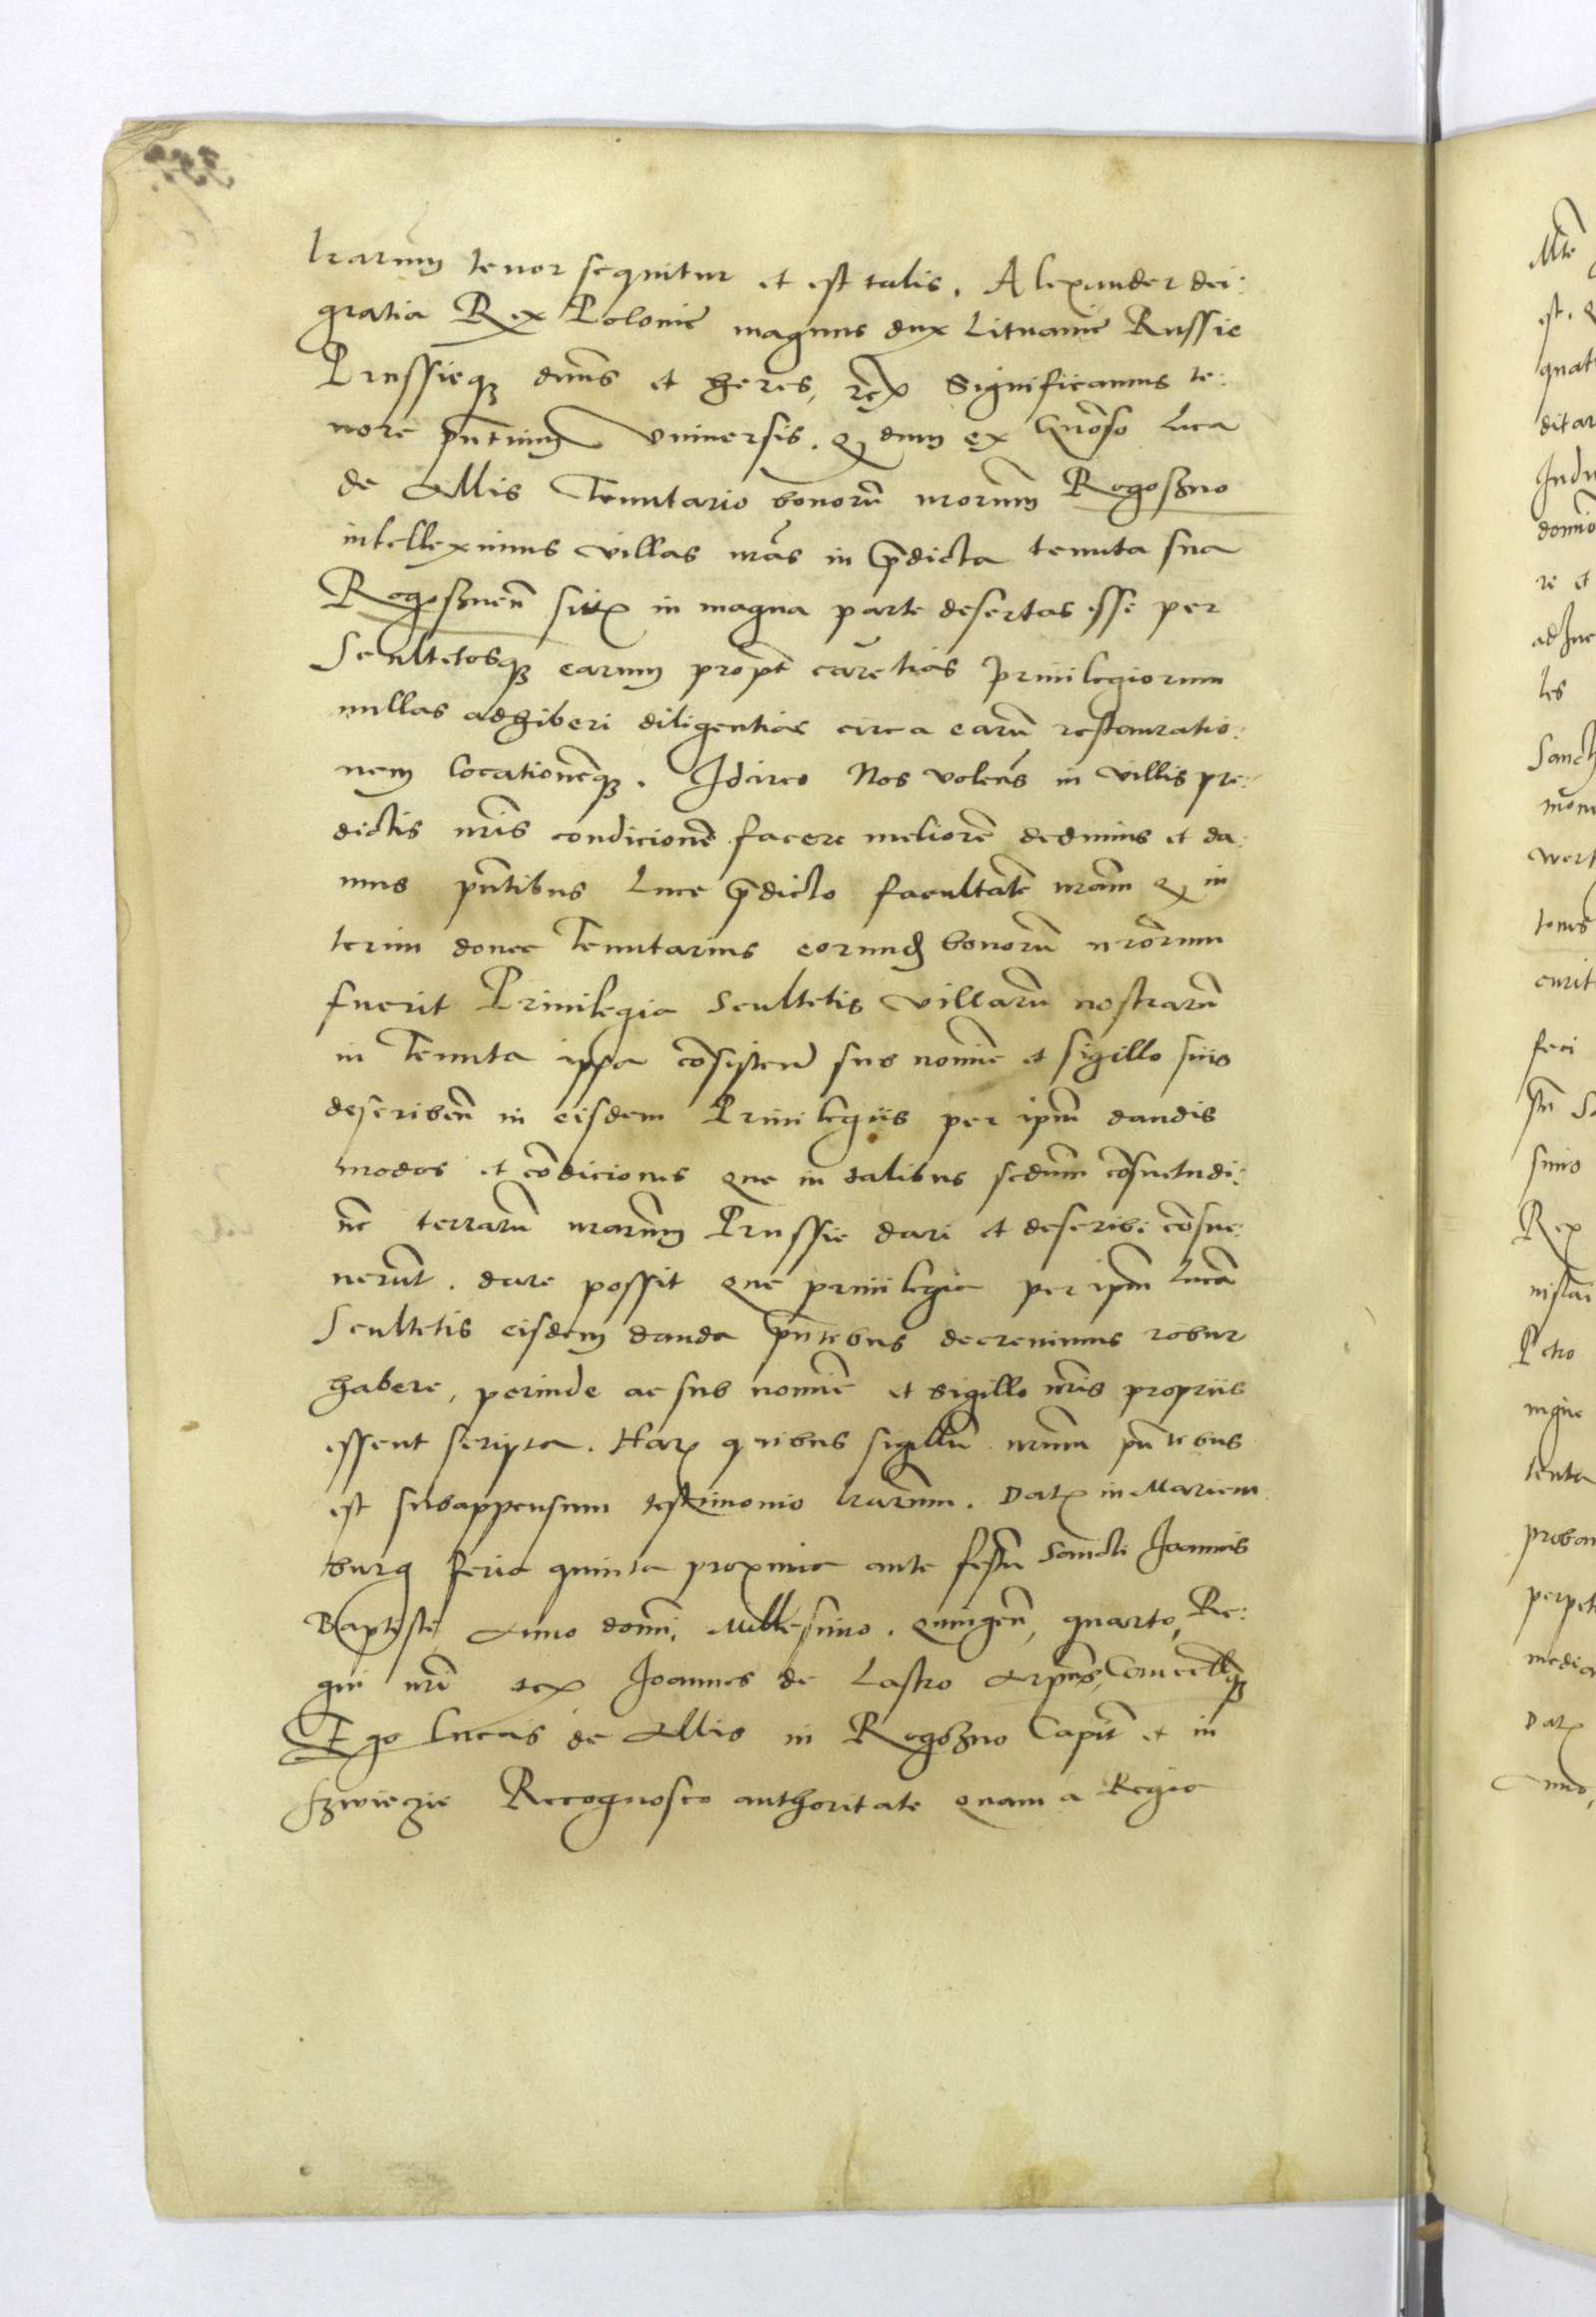 lrarum tenor sequitur et est talis. Alexander dei:
gratia Rex Polonie magnus dux Lituanie Russie
Prussieqz dnus et heres, rex Significamus te:
nore pntium Vniuersis. q dum ex Gnoso Luca
de Allis Tenutario bonoru nrorum Rogoszno
intelleximus villas nras in pdicta tenuta sua
Rogosznen sitas in magna parte desertas esse per
Scultetosqz earum propt caretias Priuilegiorum
nullas adhiberi diligentias circa earu restauratio:
nem locationeqz. Idcirco Nos volens in villis pre:
dictis nris condicione facere meliore dedimus et da:
mus pntibus Luce pdicto facultate nram q in
terim donec Tenutarius eorund bonoru nrorum
fuerit Priuilegia Scultetis villaru nostraru
in Tenuta ipsa cosisten sub nomine et sigillo suis
describen in eisdem Priuilegiis per ipm dandis
modos et codiciones que in talibus sedum cosuetudi:
ne terraru nrarum Prussie dari et describi cosue:
nerut. dare possit que priuilegia per ipm Luca
Scultetis eisdem danda pntibus decreuimus robur
habere, perinde ac sub nomine et sigillo nris propriis
essent scripta. Harz quibus sigillu nrum pntibus
est subappensum testimonio lrarum. Datz in Mariem
burg feria quinta proxima ante festu Sancti Joannis
Baptiste Anno domni Millesimo. quingen, quarto, Re:
gni nri Joannes de Lasko Cancellqz
Ego Lucas de Allis in Rogoszno Capit et in
Szwiezie Recognosco authoritate quam a Regia